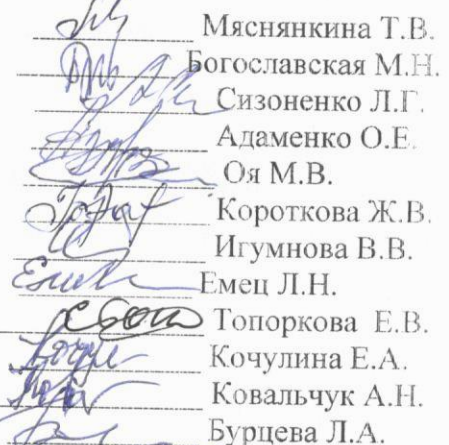 Мяснянкина Т.В.
Богославская М.Н.
Сизоненко Л.Г.
Адаменко О.Е.
Оя М.В.
Короткова Ж.В.
Игумнова В.В.
Емец Л.Н.
Топоркова Е.В.
Кочулина Е.А.
Ковальчук А.Н.
Бурцева Л.А.